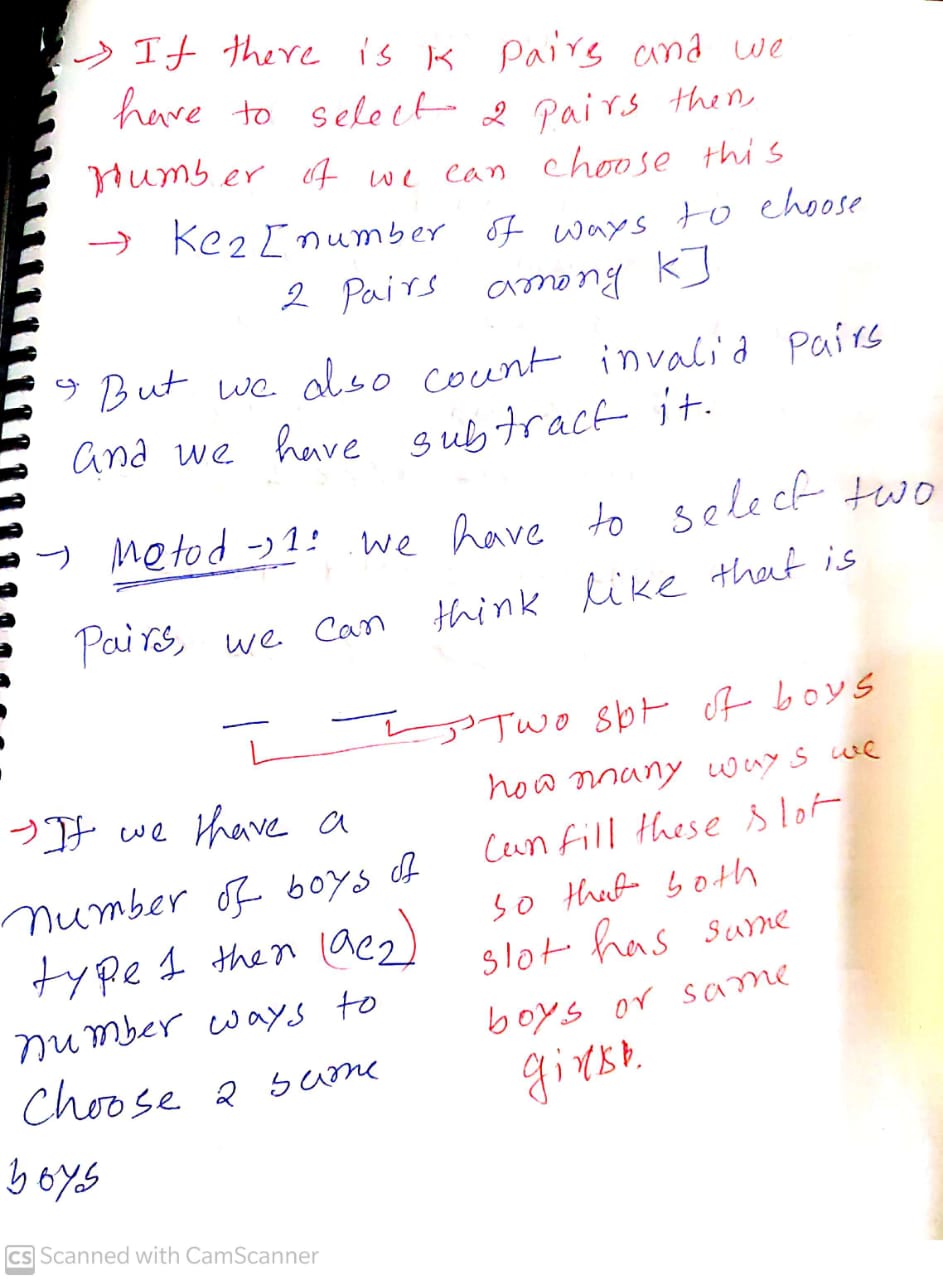 → If there is K pairs and we
have to select 2 pairs then
number of we can choose this
→ Kc2 [number of ways to choose
2 pairs among K]
→ But we also count invalid pairs
and we have subtract it.
→ Metod →1: we have to select two
Pairs, we can think like that is
Two slot of boys
how many ways we
can fill these slot
so that both
slot has same
boys or same
→ If we thave a
number of boys of
type 1 then (ac2)
number ways to
Choose 2 same
boys
CS Scanned with CamScanner